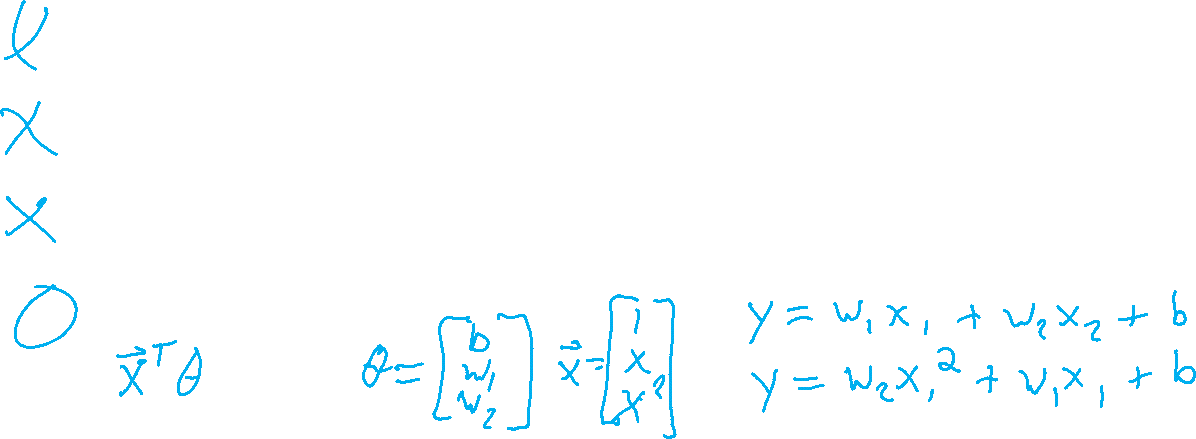 x
x
x
0
x⃗ᵀθ
θ = [b w₁ w₂]
x⃗ = [1 x x²]
y = w₁x₁ + w₂x₂ + b
y = w₂x₁² + w₁x₁ + b